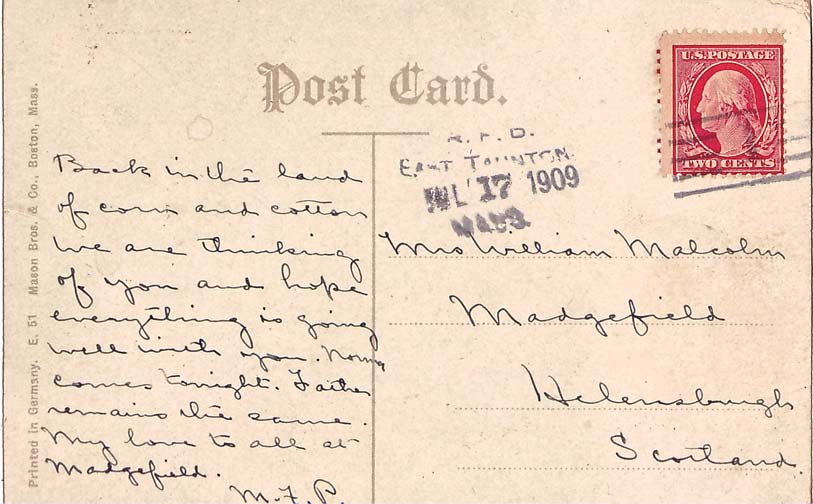 Post Card.
U.S. POSTAGE
TWO CENTS
R. F. D.
EAST TAUNTON.
JUL 17 1909
MASS.
Printed in Germany. E. 51 Mason Bros. & Co., Boston, Mass.
Back in the land
of corn and cotton
we are thinking
of you and hope
everything is going
well with you. Norma
comes tonight. Father
remains the same.
My love to all at
Madgefield.
M. F. P.
Mrs William Malcolm
Madgefield
Helensburgh
Scotland.